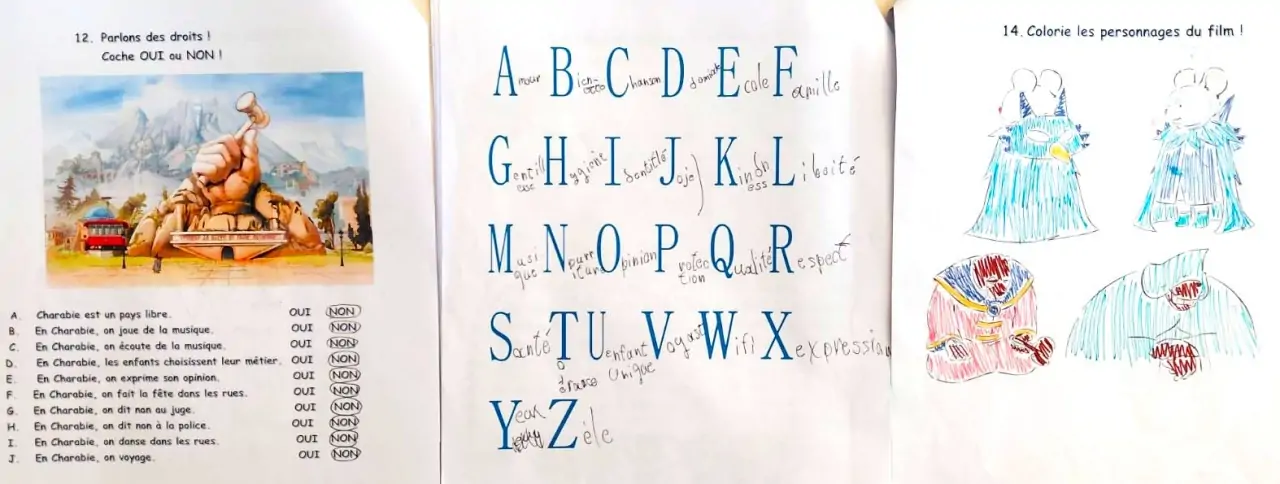 12. Parlons des droits !
Coche OUI ou NON !
A. Charabie est un pays libre. OUI NON
B. En Charabie, on joue de la musique. OUI NON
C. En Charabie, on écoute de la musique. OUI NON
D. En Charabie, les enfants choisissent leur métier. OUI NON
E. En Charabie, on exprime son opinion. OUI NON
F. En Charabie, on fait la fête dans les rues. OUI NON
G. En Charabie, on dit non au juge. OUI NON
H. En Charabie, on dit non à la police. OUI NON
I. En Charabie, on danse dans les rues. OUI NON
J. En Charabie, on voyage. OUI NON
Amour Bien- Chanson D Ecole Famille
Gentill Hygiène Identitlé Joie Kindn Liberté
esse ess
Musi Nourr Opinion Protec Qualité Respect
que iture tion
Santé T Uenfant Voyast Wifi Xexpression
unique
Yeah Zèle
14. Colorie les personnages du film !